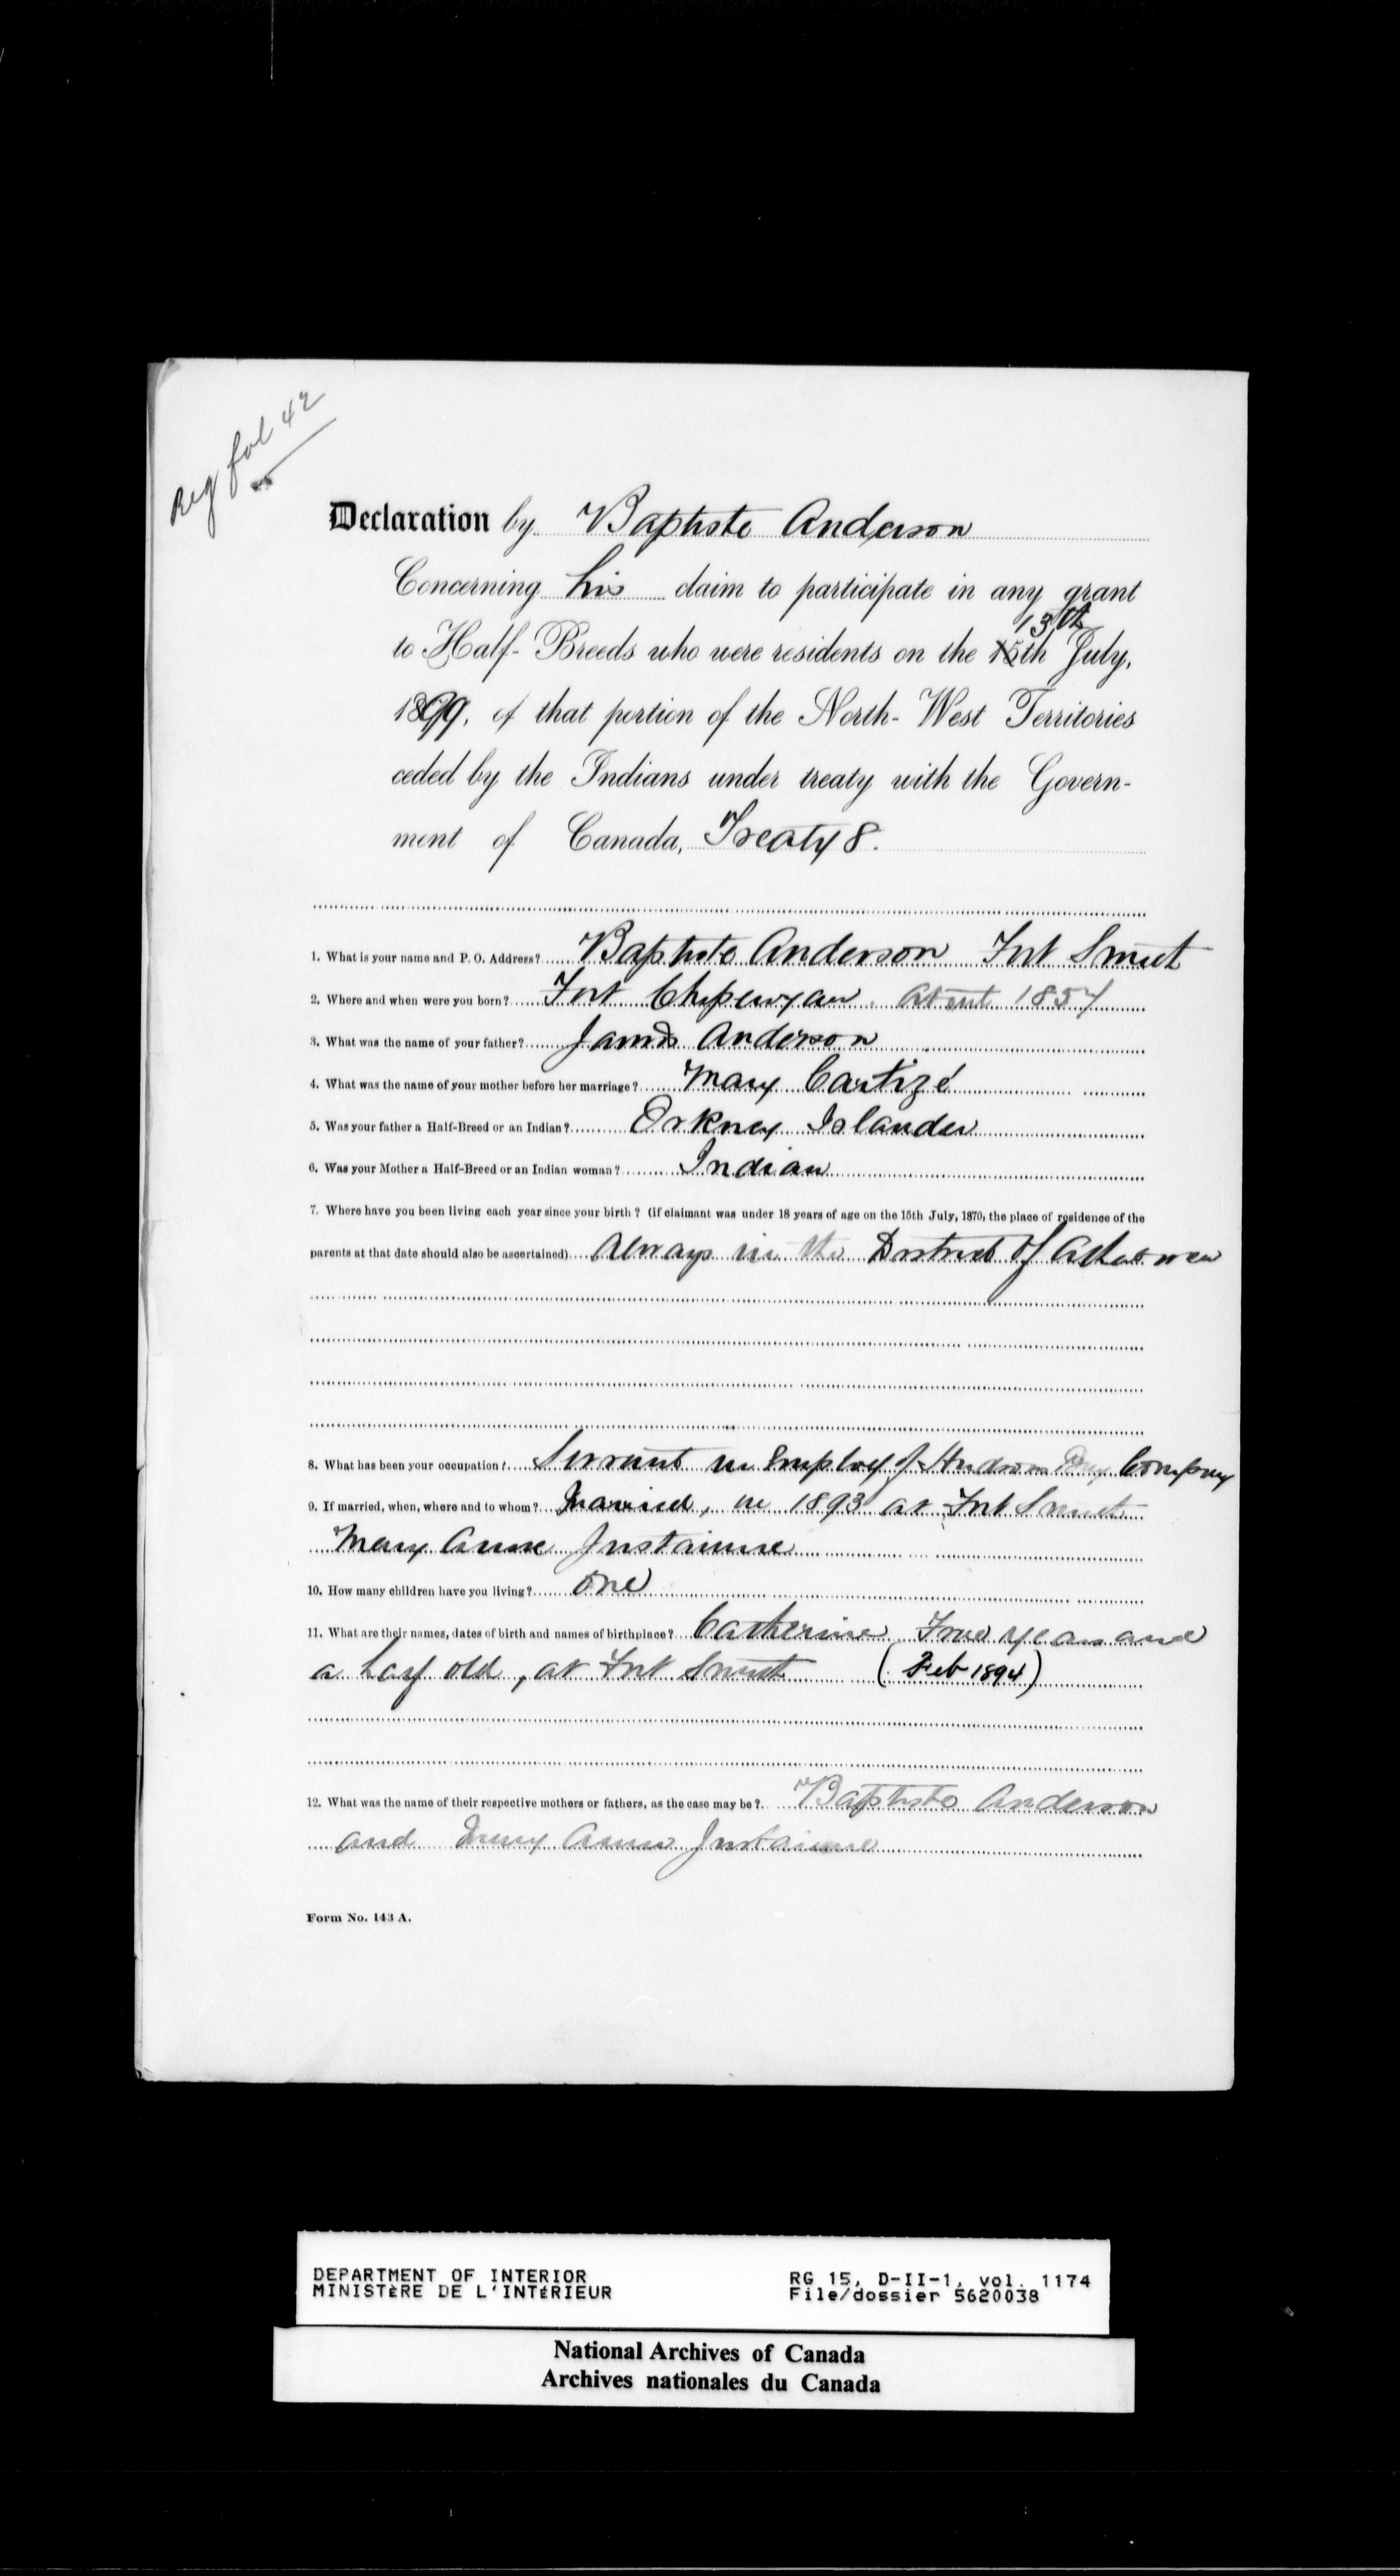 Reg fol 42
Declaration by Baptiste Anderson
Concerning his claim to participate in any grant
13th
to Half-Breeds who were residents on the 15th July,
1899, of that portion of the North-West Territories
ceded by the Indians under treaty with the Govern-
ment of Canada, Treaty 8.
1. What is your name and P. O. Address? Baptiste Anderson Fort Smith
2. Where and when were you born? Fort Chipewyan. about 1857
3. What was the name of your father? James Anderson
4. What was the name of your mother before her marriage? Mary
5. Was your father a Half-Breed or an Indian? Orkney Islander
6. Was your Mother a Half-Breed or an Indian woman? Indian
7. Where have you been living each year since your birth? (if claimant was under 18 years of age on the 15th July, 1870, the place of residence of the
parents at that date should also be ascertained) Always in the District of
8. What has been your occupation? Servant in employ of Hudson Bay Company
9. If married, when, where and to whom? Married, in 1893 at Fort Smith
Mary Anne
10. How many children have you living? One
11. What are their names, dates of birth and names of birthplace? Catherine years and
a half old, at Fort Smith (Feb 1894)
12. What was the name of their respective mothers or fathers, as the case may be? Baptiste Anderson
and Mary Anne
Form No. 143 A.
DEPARTMENT OF INTERIOR RG 15, D-II-1, vol. 1174
MINISTÈRE DE L'INTÉRIEUR File/dossier 5620038
National Archives of Canada
Archives nationales du Canada